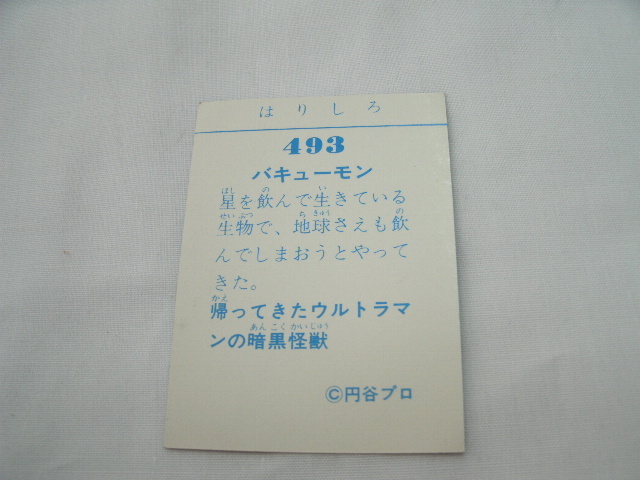 はりしろ
493
バキューモン
星を飲んで生きている
生物で、地球さえも飲
んでしまおうとやって
きた。
帰ってきたウルトラマ
ンの暗黒怪獣
©円谷プロ